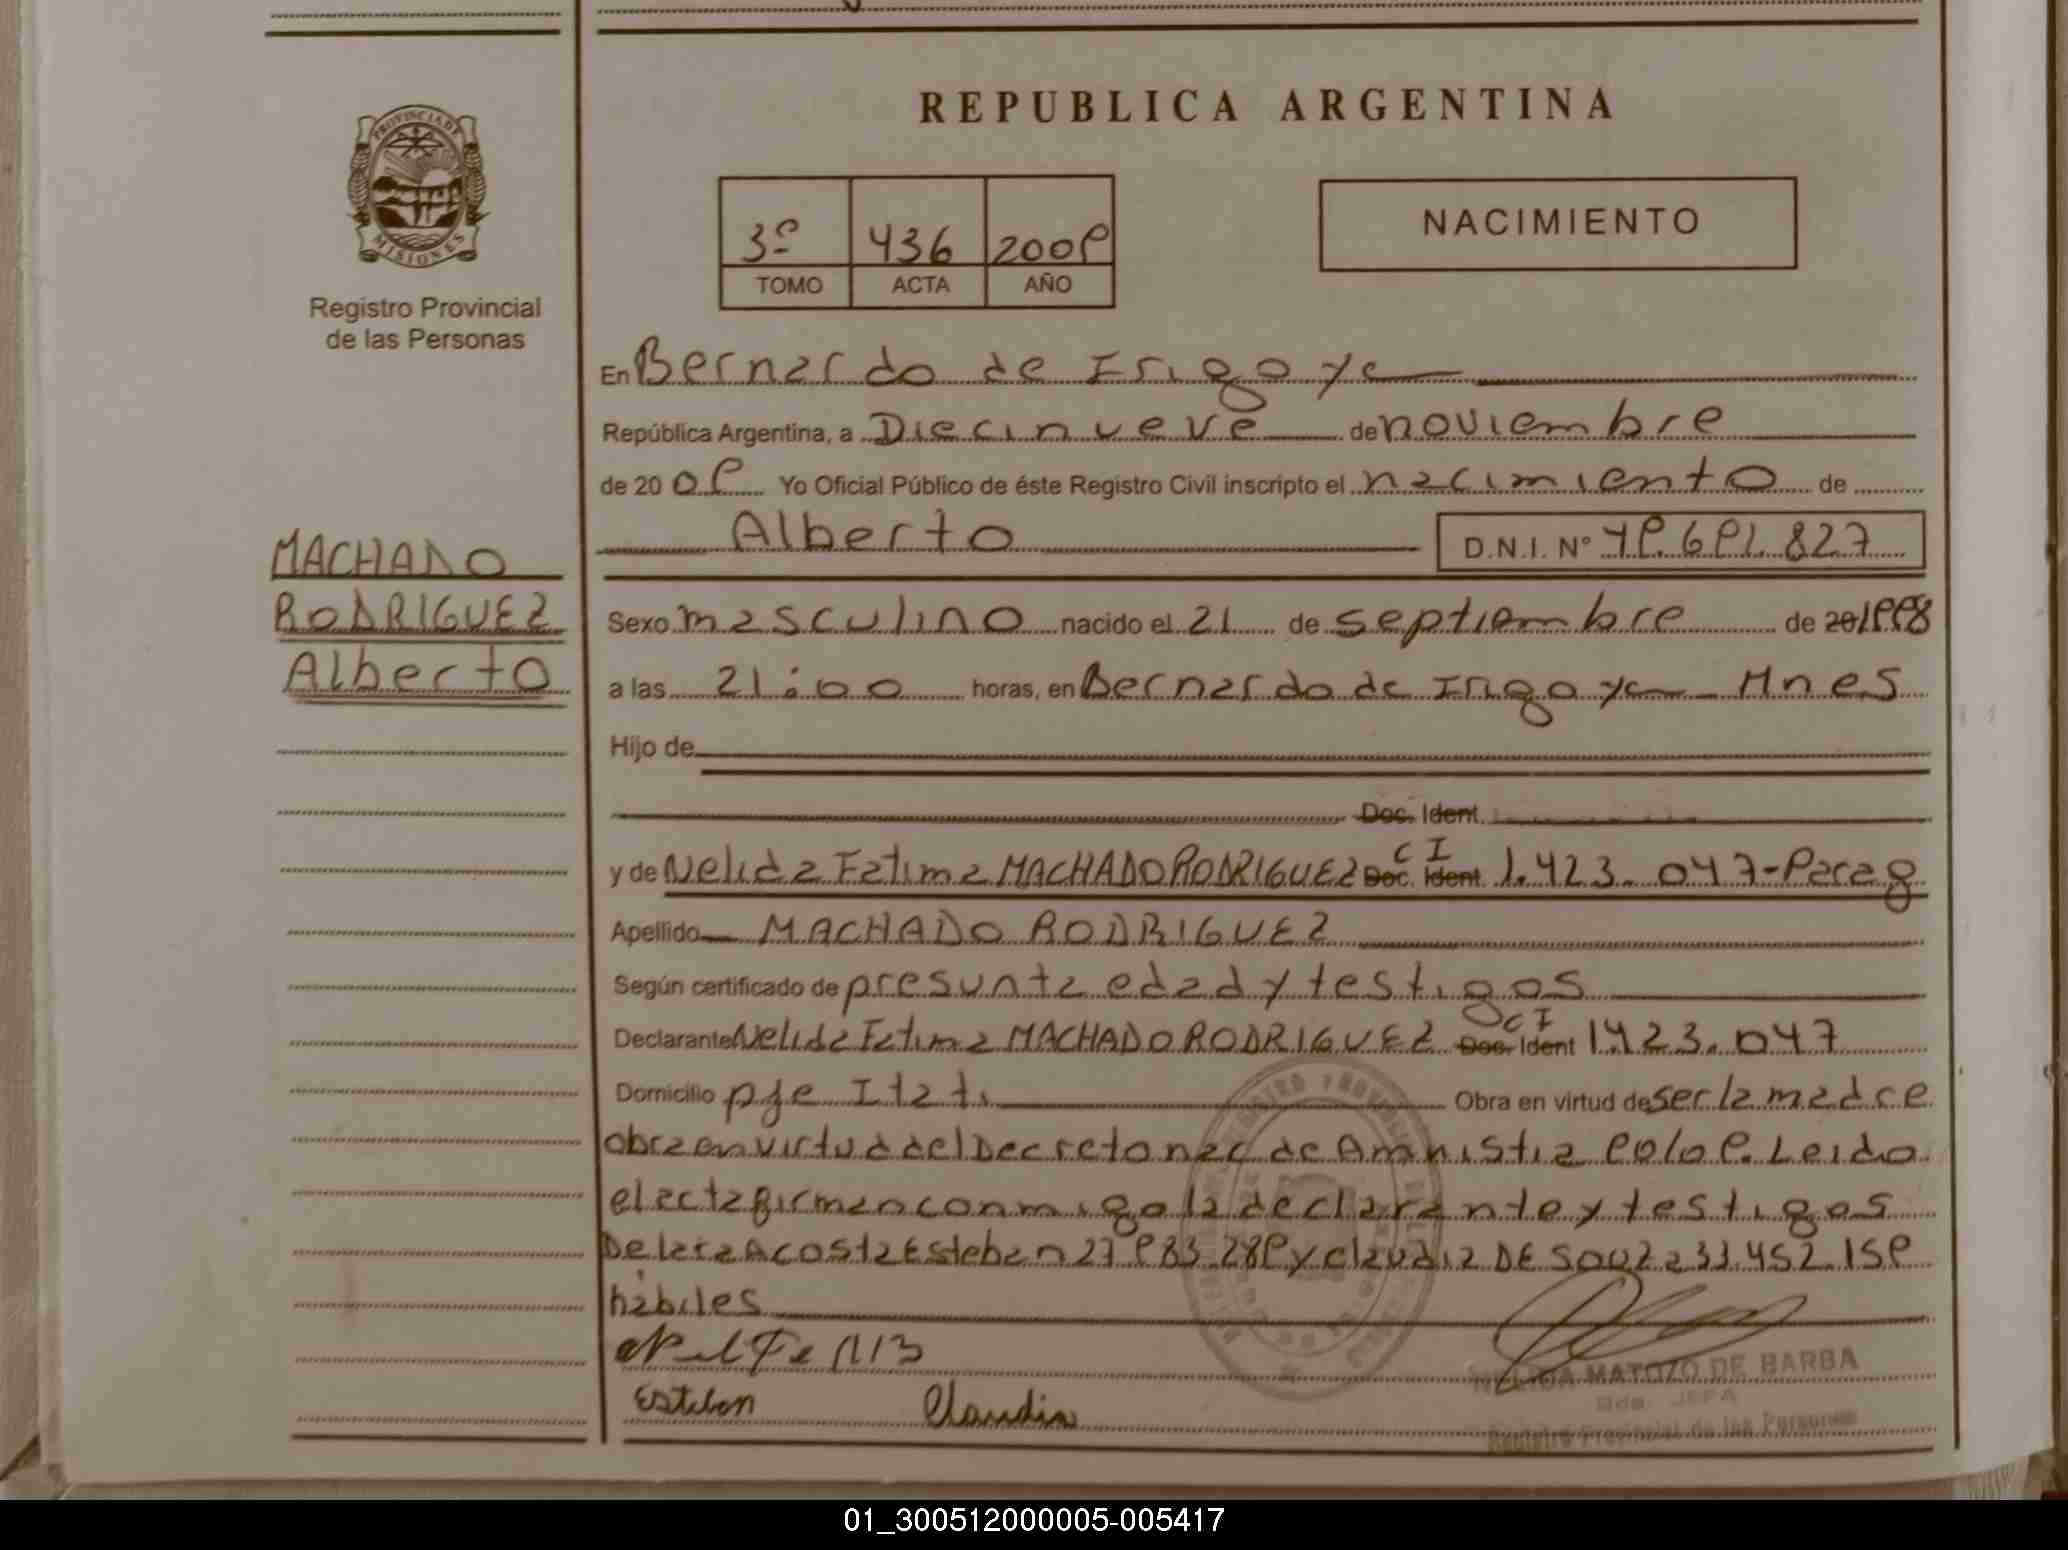 REPUBLICA ARGENTINA
PROVINCIA DE
MISIONES
Registro Provincial
de las Personas
3º 436 2009
TOMO ACTA AÑO
NACIMIENTO
En Bernardo de Irigoye
República Argentina, a Diecinueve de noviembre
de 20 09 Yo Oficial Público de éste Registro Civil inscripto el nacimiento de
Alberto D.N.I. Nº 49.691.827
MACHADO
RODRIGUEZ
Alberto
Sexo masculino nacido el 21 de septiembre de 20 1998
a las 21:00 horas, en Bernardo de Irigoye Mnes
Hijo de
Doc. Ident.
y de Nelida Fatima MACHADO RODRIGUEZ Doc. Ident CI 1.423.047-Parag
Apellido MACHADO RODRIGUEZ
Según certificado de presunta edad y testigos
Declarante Nelida Fatima MACHADO RODRIGUEZ Doc. Ident CI 1.423.047
Domicilio pje Itati Obra en virtud de ser la madre
obra en virtud del Decreto nac de Amnistia 90/09. Leido
el acta firman conmigo la declarante y testigos
De lara Acosta Esteban 27.983.289 y Claudia DE SOUZA 33.452.159
habiles
Esteban Claudia
NELIDA MATOZO DE BARBA
JEFA
Registro Provincial de las Personas
01_300512000005-005417